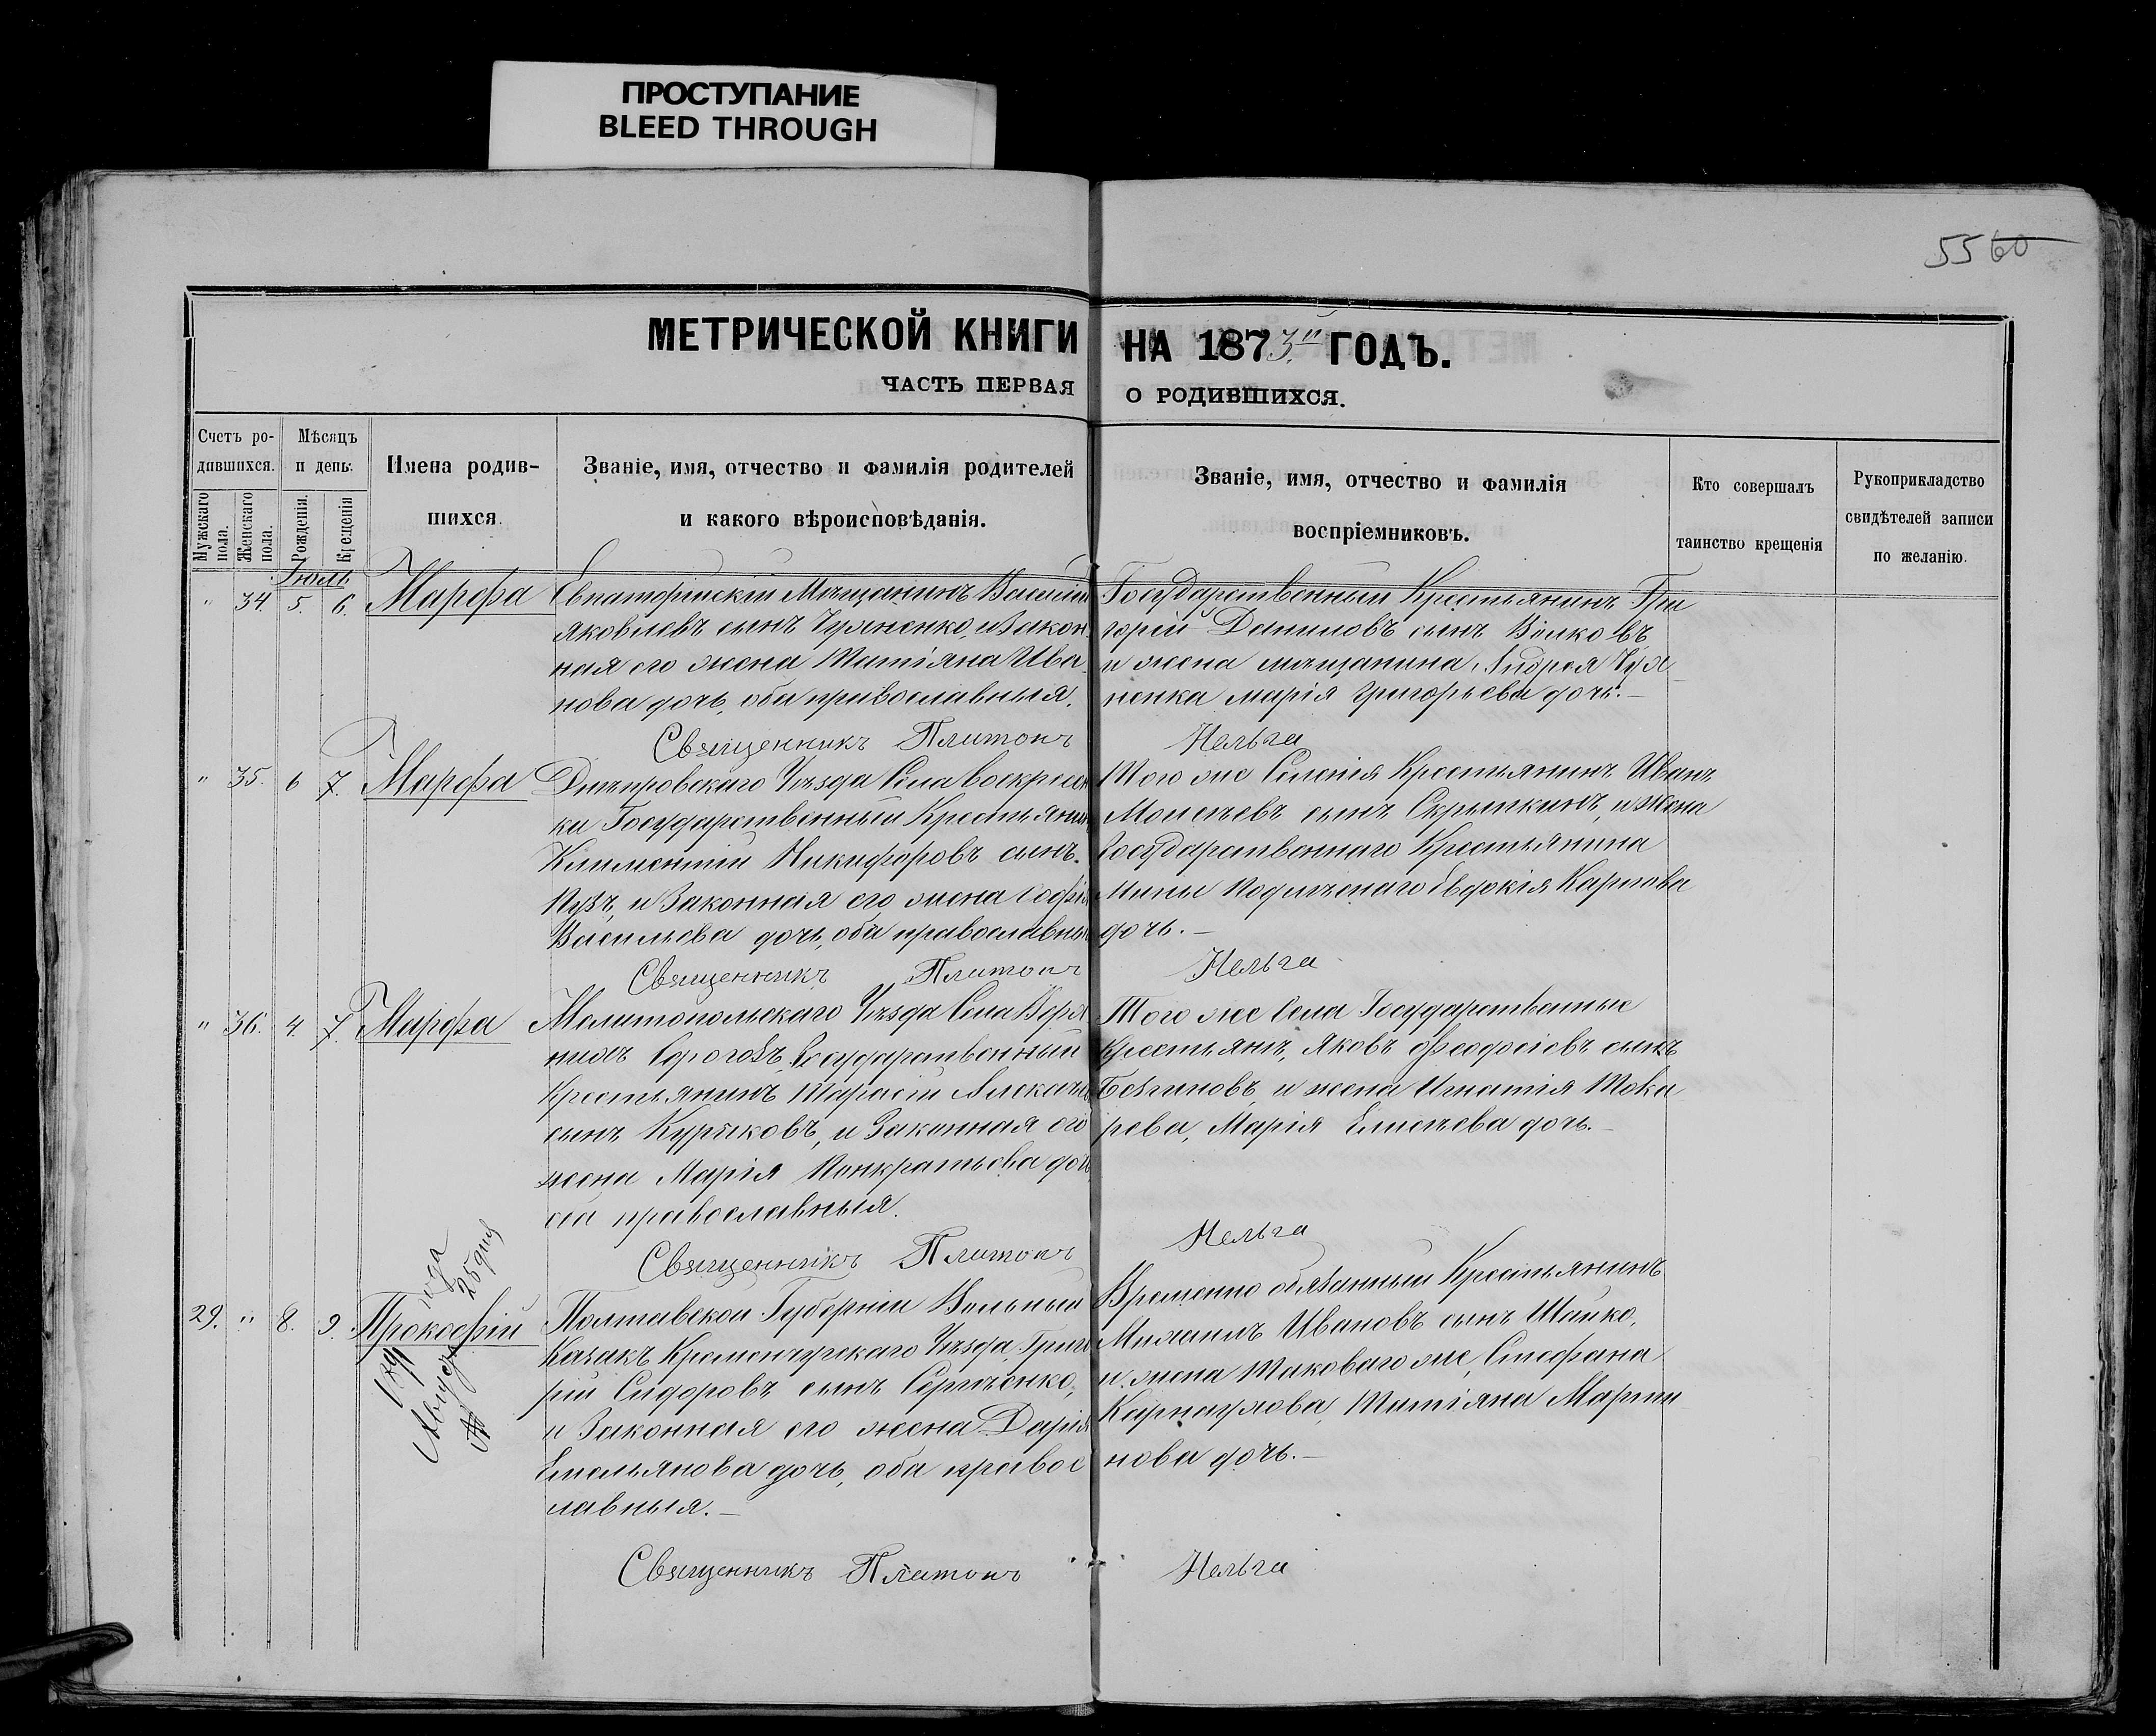 ПРОСТУПАНИЕ
BLEED THROUGH
55 60
МЕТРИЧЕСКОЙ КНИГИ НА 1873й ГОДЪ.
ЧАСТЬ ПЕРВАЯ О РОДИВШИХСЯ.
Счетъ ро-
дившихся.
Мужскаго пола.
Женскаго пола.
Мѣсяцъ
и день.
Рожденія.
Крещенія
Имена родив-
шихся.
Званіе, имя, отчество и фамилія родителей
и какого вѣроисповѣданія.
Званіе, имя, отчество и фамилія
воспріемниковъ.
Кто совершалъ
таинство крещенія
Рукоприкладство
свидѣтелей записи
по желанію.
Июль
" 34. 5. 6. Марфа
Евпаторійскій Мѣщанинъ Василій
Яковлевъ сынъ и Закон
ная его жена Татіяна Ива
нова дочь, оба православныя.
Государственный Крестьянинъ Гри
горій Даниловъ сынъ Волковъ
и жена мѣщанина Андрея
Марія Григорьева дочь.–
Священникъ Платонъ Нельга
" 35. 6 7. Марфа
Днѣпровскаго Уѣзда Села Воскресен
ки Государственный Крестьянинъ
Климентій Никифоровъ сынъ
и Законная его жена Софія
Васильева дочь, оба православны
Того же Селенія Крестьянинъ Иванъ
Моисеевъ сынъ Скрыпкинъ, и жена
Государственнаго Крестьянина
Мины Евдокія Карпова
дочь.–
Священникъ Платонъ Нельга
" 36. 4. 7. Марфа
Мелитопольскаго Уѣзда Села
Серогозъ, Государственный
Крестьянинъ Тарасій
сынъ Куряковъ, и Законная его
жена Марія Понкратьева дочь
оба православныя.
Того же Села Государственные
Крестьянъ, Яковъ Феодосіевъ сынъ
и жена Игнатія Тока
рева, Марія Елисѣева дочь.–
Священникъ Платонъ Нельга
29. " 8. 9. Прокофій
Полтавской Губерніи Вольный
Казакъ Кременчугскаго Уѣзда, Григо
рій Сидоровъ сынъ Сергѣенко,
и Законная его жена Дарія
Емельянова дочь, оба правос
лавныя.–
Временно обязанный Крестьянинъ
Михаилъ Ивановъ сынъ Шайко,
и жена Таковаго же, Стефана
Карнаухова, Татіяна Марти
нова дочь.–
Священникъ Платонъ Нельга
года
Августа 25 дня